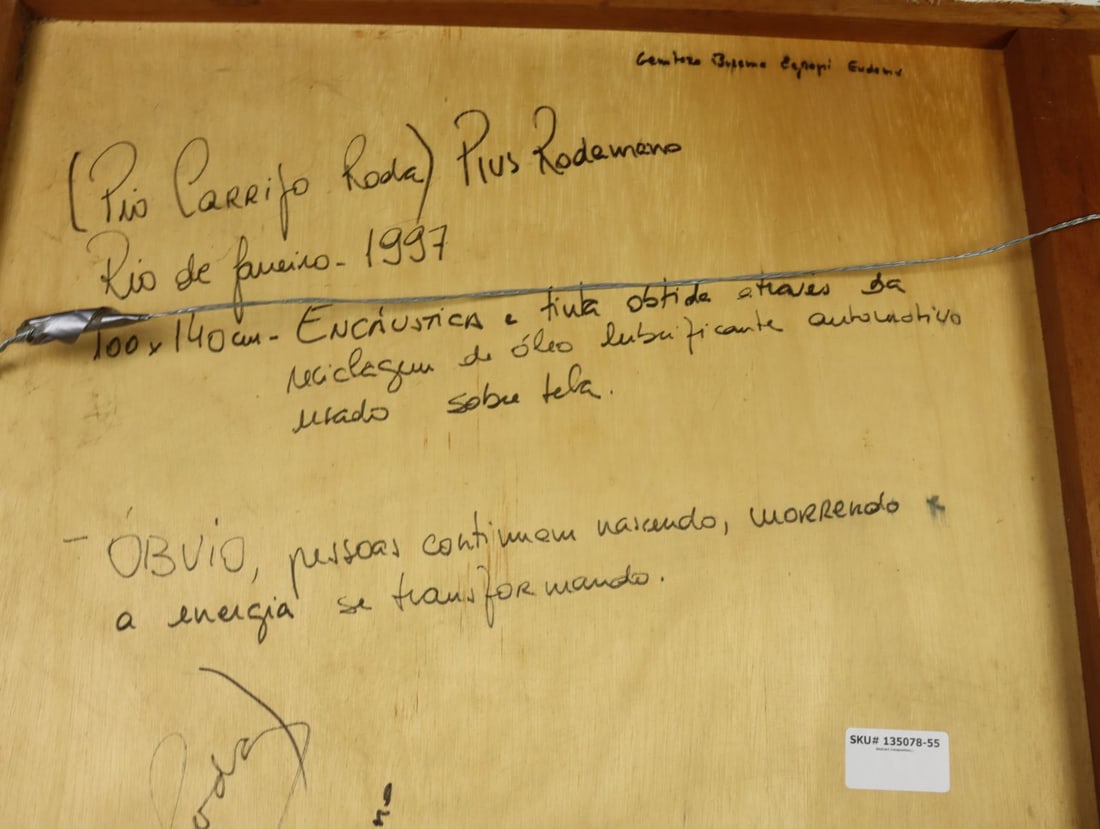 (Pio Carrijo Roda) Pius Rodamano
Rio de Janeiro - 1997
100 x 140 cm - ENCÁUSTICA e tinta obtida através da
reciclagem de óleo lubrificante automotivo
usado sobre tela.
- ÓBVIO, pessoas continuam nascendo, morrendo
a energia se transformando.
Roda
SKU# 135078-55